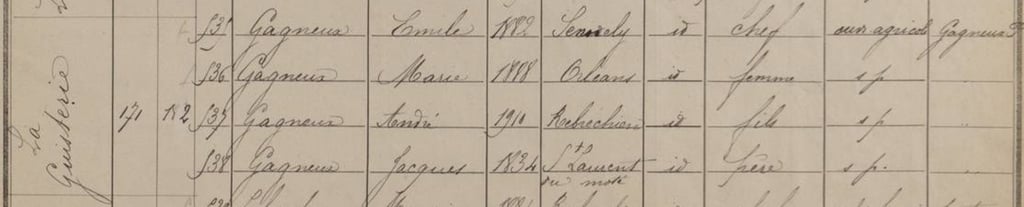 535 Gagneux Emile 1882 Sennely id chef ouv agricol Gagneux
536 Gagneux Marie 1888 Orléans id femme s p
La Guisterie 171 182 537 Gagneux André 1910 Rebréchien id fils s p "
538 Gagneux Jacques 1834 St Laurent id père s p. "